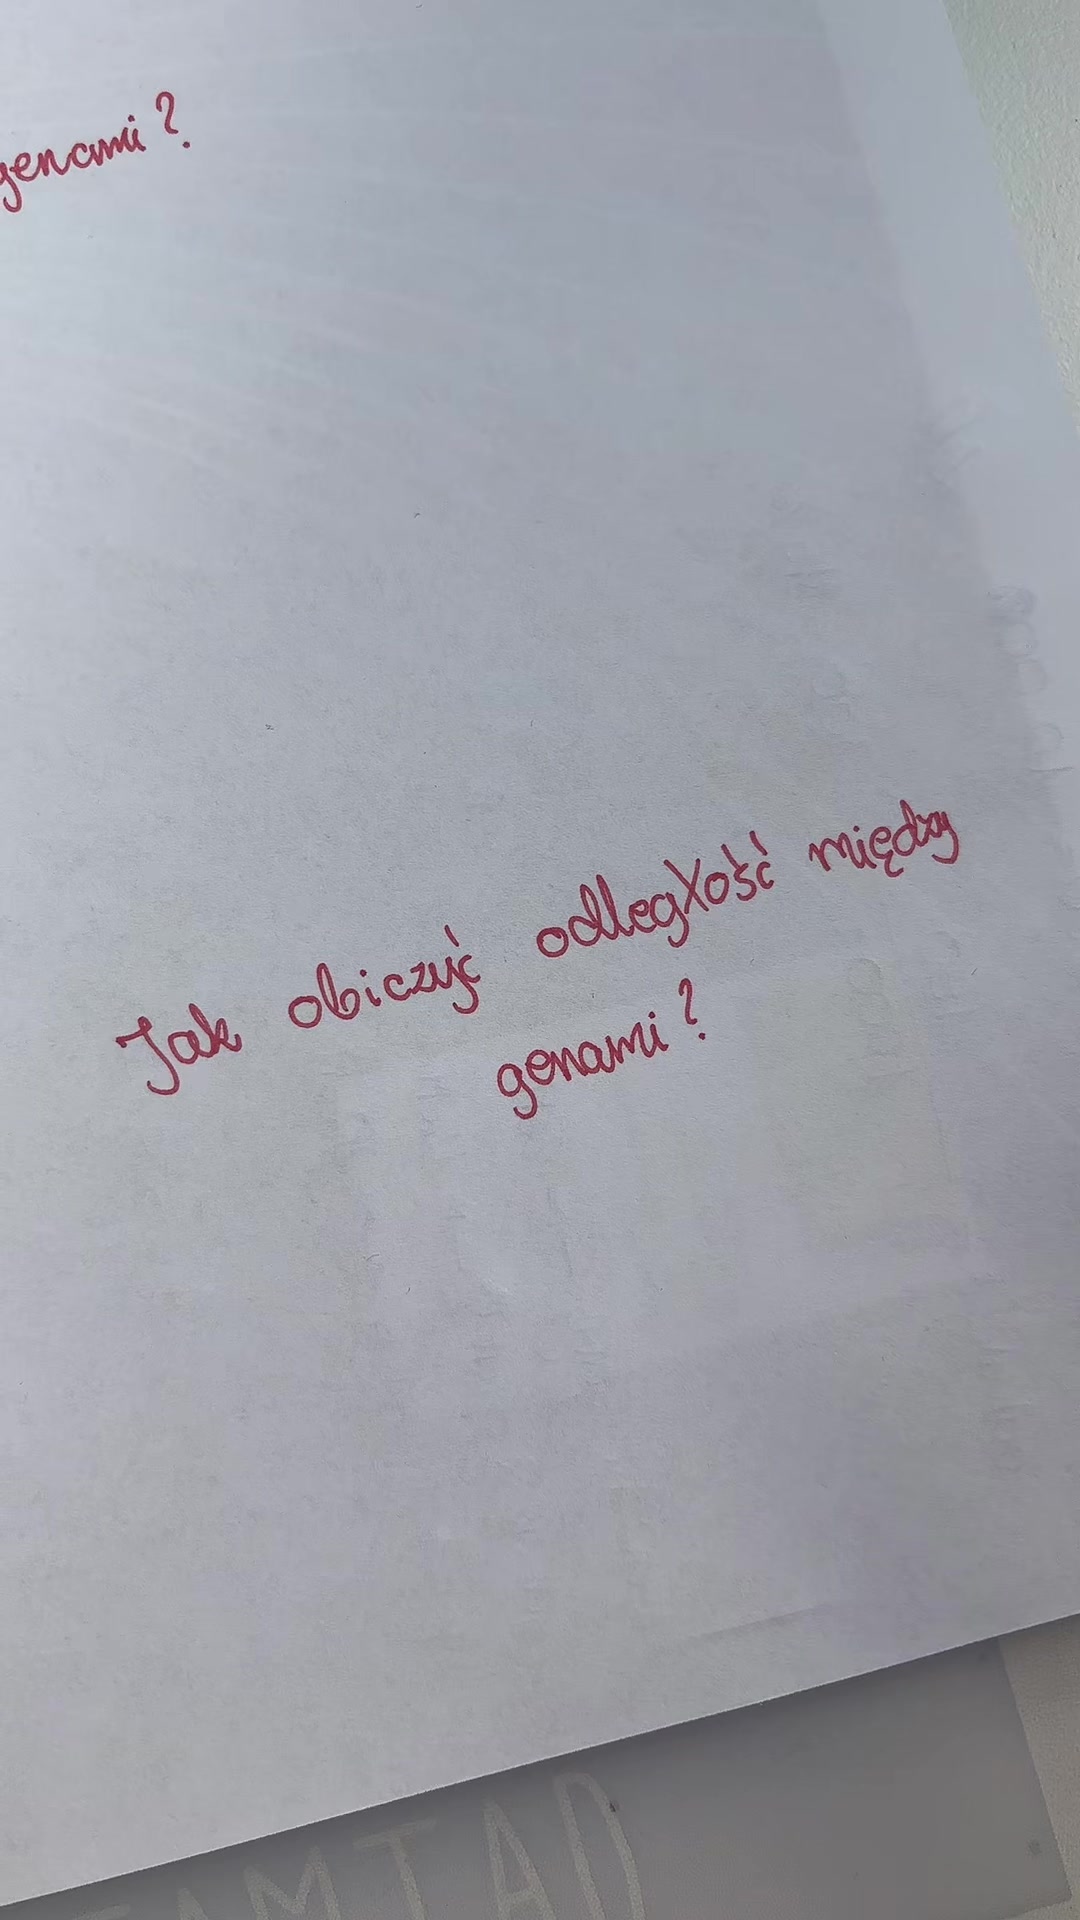 genami?
Jak obiczyć odległość między
genami?
AMTAD